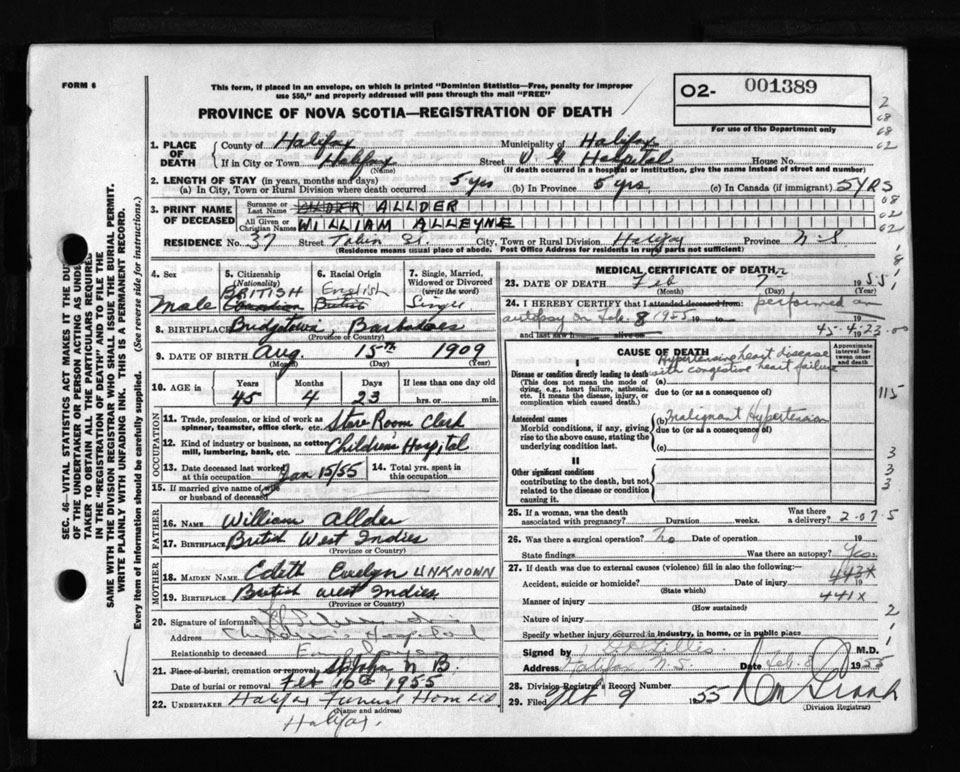 FORM 6
This form, if placed in an envelope, on which is printed "Dominion Statistics—Free, penalty for improper
use $50," and properly addressed will pass through the mail "FREE"
PROVINCE OF NOVA SCOTIA—REGISTRATION OF DEATH
02- 001389
For use of the Department only
1. PLACE OF DEATH
County of Halifax Municipality of Halifax
If in City or Town Halifax Street V. G Hospital House No.
(Name) (If death occurred in a hospital or institution, give the name instead of street and number)
2. LENGTH OF STAY (in years, months and days)
(a) In City, Town or Rural Division where death occurred 5 yrs (b) In Province 5 yrs. (c) In Canada (if immigrant) 5 YRS
3. PRINT NAME OF DECEASED
Surname or Last Name ALLDER
All Given or Christian Names WILLIAM ALLEYNE
RESIDENCE No. 37 Street Tobin St. City, Town or Rural Division Halifax Province N-S
(Residence means usual place of abode. Post Office Address for residents in rural parts not sufficient)
4. Sex Male
5. Citizenship (Nationality) BRITISH Canadian
6. Racial Origin English British
7. Single, Married, Widowed or Divorced (write the word) Single
8. BIRTHPLACE Bridgetown, Barbadoes
(Province or Country)
9. DATE OF BIRTH Aug. 15th 1909
(Month) (Day) (Year)
10. AGE in Years 45 Months 4 Days 23 If less than one day hrs. or min.
OCCUPATION
11. Trade, profession, or kind of work as
spinner, teamster, office clerk, etc. Store Room Clerk
12. Kind of industry or business, as cotton
mill, lumbering, bank, etc. Children's Hospital
13. Date deceased last worked
at this occupation Jan 15/55
14. Total yrs. spent in
this occupation
15. If married give name of wife
or husband of deceased
FATHER
16. NAME William Allder
17. BIRTHPLACE British West Indies
(Province or Country)
MOTHER
18. MAIDEN NAME Edith Evelyn UNKNOWN
19. BIRTHPLACE British West Indies
(Province or Country)
20. Signature of informant
Address Children's Hospital
Relationship to deceased
21. Place of burial, cremation or removal St John N B.
Date of burial or removal Feb 10th 1955
22. UNDERTAKER Halifax Funeral Home Ltd
(Name and address)
Halifax.
MEDICAL CERTIFICATE OF DEATH
23. DATE OF DEATH Feb 7 1955
(Month) (Day) (Year)
24. I HEREBY CERTIFY that I attended deceased from: performed an
autopsy on Feb. 8 1955 19 to 19
and last saw alive on 19
45-4-23-00
CAUSE OF DEATH
Approximate interval between onset and death
I
Disease or condition directly leading to death
(This does not mean the mode of
dying, e.g., heart failure, asthenia,
etc. It means the disease, injury, or
complication which caused death.)
(a) Hypertensive heart disease
with congestive heart failure
due to (or as a consequence of)
Antecedent causes
Morbid conditions, if any, giving
rise to the above cause, stating the
underlying condition last.
(b) Malignant Hypertension
due to (or as a consequence of)
(c)
II
Other significant conditions
contributing to the death, but not
related to the disease or condition
causing it.
115
3
3
3
25. If a woman, was the death
associated with pregnancy? Duration weeks. Was there
a delivery? 2-07-5
26. Was there a surgical operation? No Date of operation 19
State findings Was there an autopsy? Yes
27. If death was due to external causes (violence) fill in also the following:—
Accident, suicide or homicide? Date of injury 19
(State which)
443x
441x
Manner of injury
(How sustained)
Nature of injury
Specify whether injury occurred in industry, in home, or in public place
Signed by M.D.
Address Halifax N.S. Date Feb. 8 1955
28. Division Registrar's Record Number
29. Filed Feb 9 1955
(Division Registrar)
SEC. 46—VITAL STATISTICS ACT MAKES IT THE DUTY
OF THE UNDERTAKER OR PERSON ACTING AS UNDER
TAKER TO OBTAIN ALL THE PARTICULARS REQUIRED
IN THE "REGISTRATION OF DEATH" AND TO FILE THE
SAME WITH THE DIVISION REGISTRAR WHO SHALL ISSUE THE BURIAL PERMIT.
WRITE PLAINLY WITH UNFADING INK. THIS IS A PERMANENT RECORD.
Every item of information should be carefully supplied. (See reverse side for instructions.)